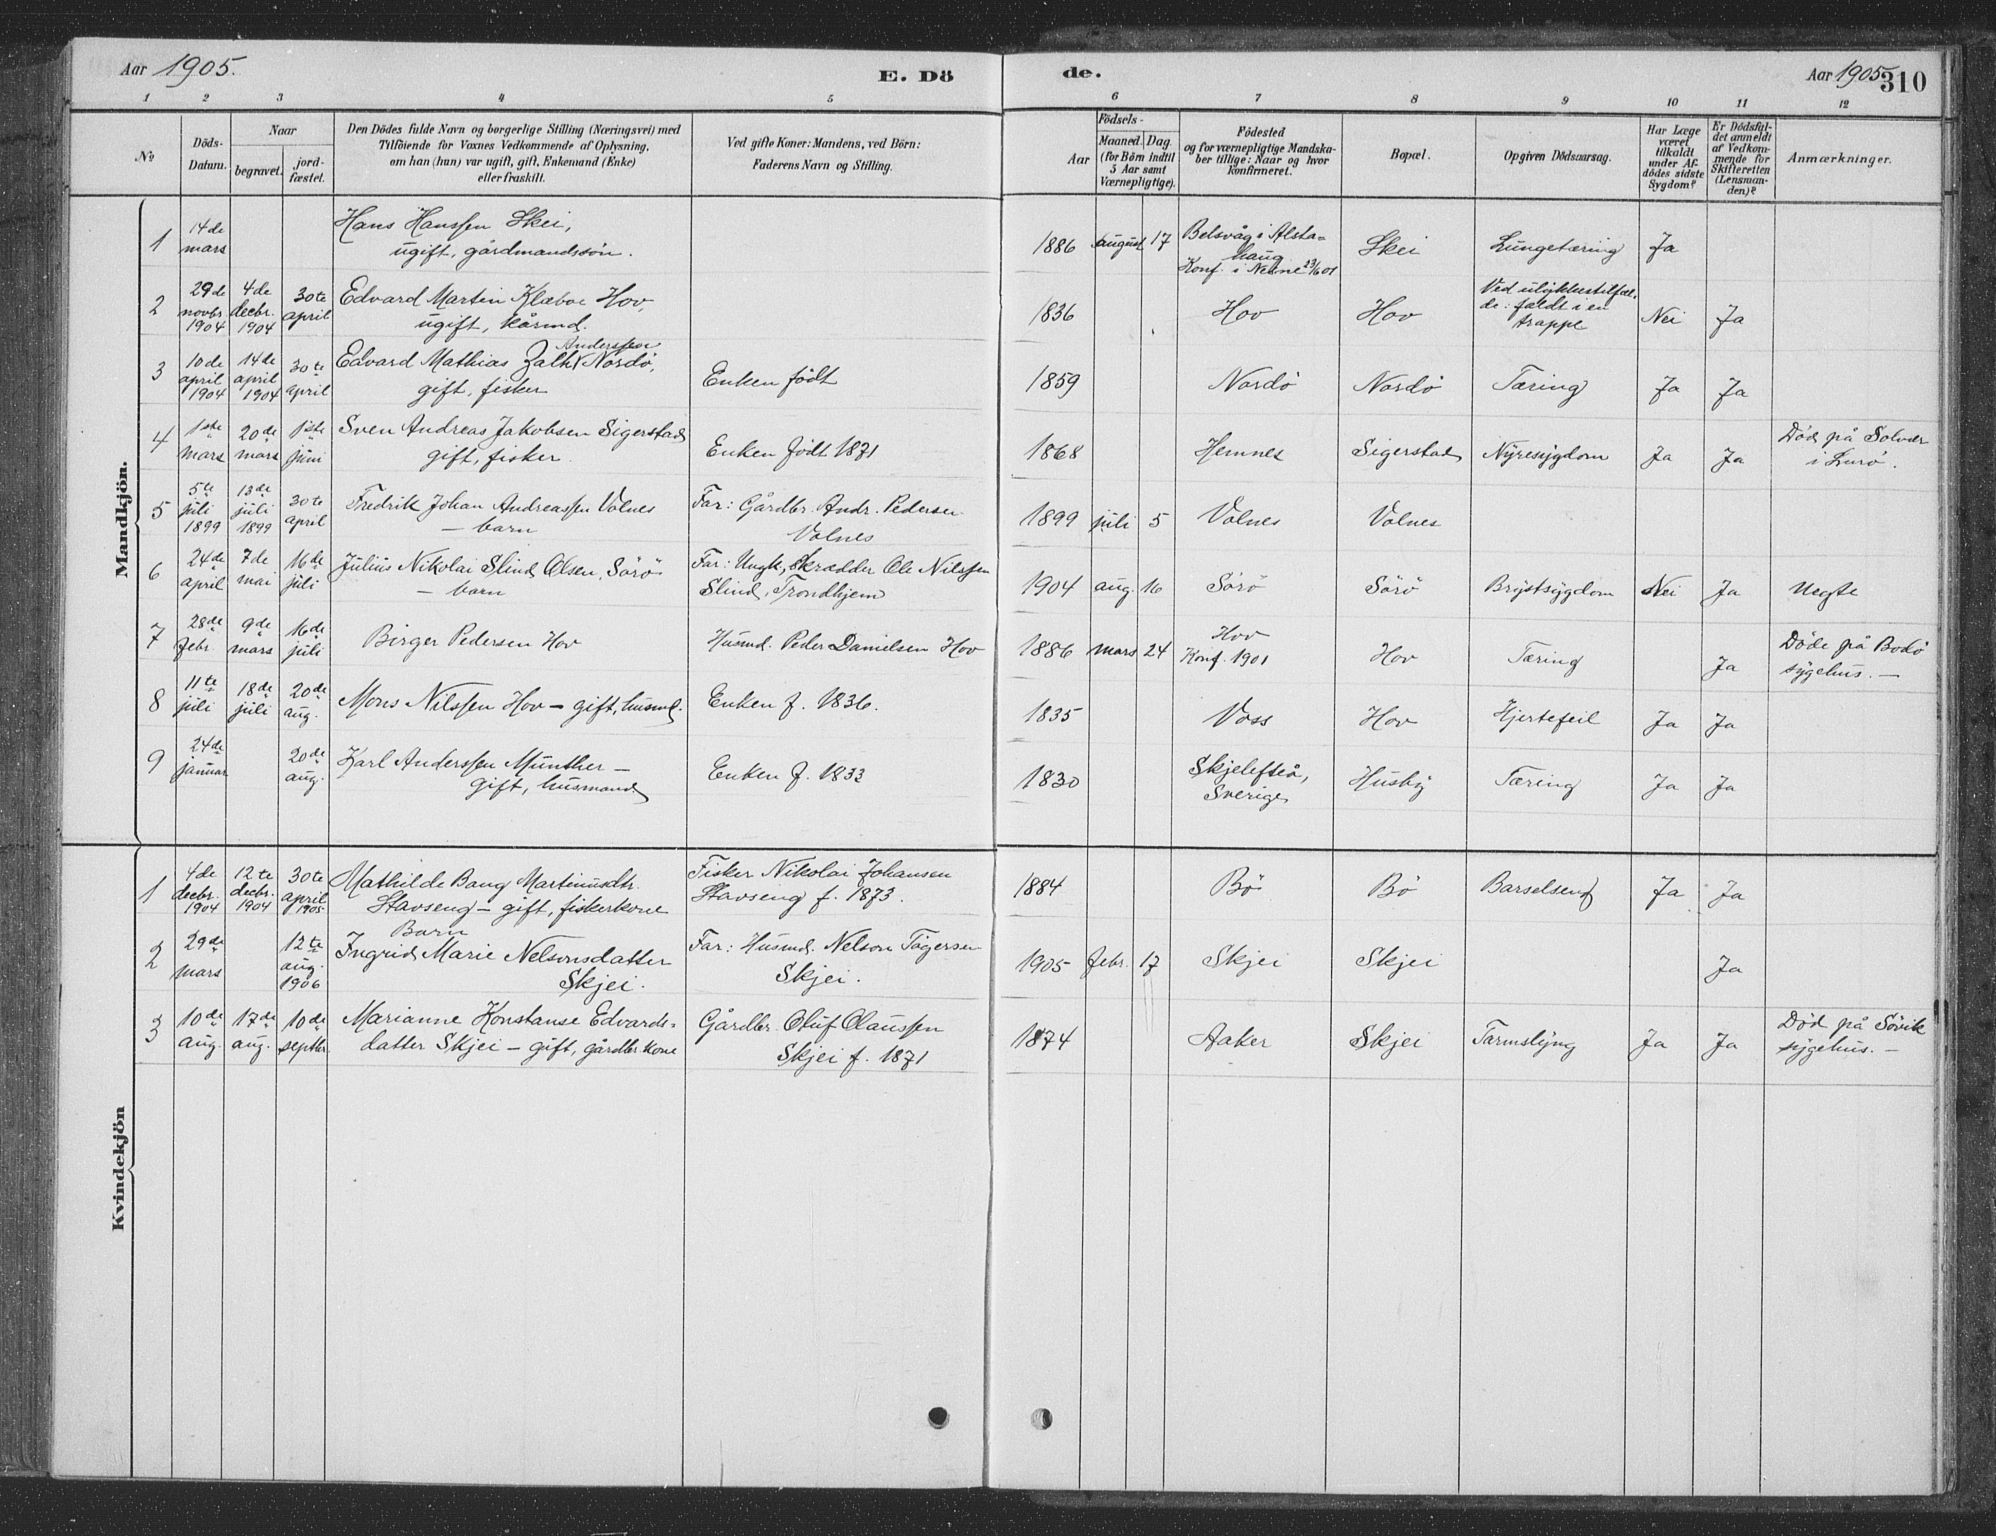 Aar 1905.
E. Dö
de.
Aar 1905
310
1 2 3 4 5 6 7 8 9 10 11 12
№
Döds-
Datum.
Naar
begravet.
jord-
fæstet.
Den Dödes fulde Navn og borgerlige Stilling (Næringsvei) med
Tilföiende for Voxnes Vedkommende af Oplysning,
om han (hun) var ugift, gift, Enkemand (Enke)
eller fraskilt.
Ved gifte Koner: Mandens, ved Börn:
Faderens Navn og Stilling.
Födsels-
Aar
Maaned. Dag.
(for Börn indtil
5 Aar samt
Værnepligtige).
Födested
og for værnepligtige Mandska-
ber tillige: Naar og hvor
konfirmeret.
Bopæl.
Opgiven Dödsaarsag.
Har Læge
været
tilkaldt
under Af-
dödes sidste
Sygdom?
Er Dödsfal-
det anmeldt
af Vedkom-
mende for
Skifteretten
(Lensman-
den)?
Anmærkninger.
Mandkjön.
1 14de mars
Hans Hanssen Skei,
ugift, gårdmandssön.
1886 august 17
Belsvåg i Alsta=
haug
Konf. i Nesne 23/6 01
Skei Lungetæring Ja
2 29de novbr. 1904 4de decbr. 1904 30te april
Edvard Martin Klæboe Hov,
ugift, kårmd.
1836 Hov Hov
Ved ulykkestilfæl.
de: faldt i en
trappe
Nei Ja
3 10de april 1904 14de april 1904 30te april
Anderssen
Edvard Mathias Zahl Nordö,
gift, fisker
Enken födt
1859 Nordö Nordö Tæring Ja Ja
4 1ste mars 20de mars 1ste juni
Sven Andreas Jakobsen Sigerstad
gift, fisker.
Enken födt 1871
1868 Hemnes Sigerstad Nyresygdom Ja Ja
Död på Solvær
i Lurö.
5 5te juli 1899 13de juli 1899 30te april
Fredrik Johan Andreassen Volnes
— barn
Far: Gårdbr. Andr. Pedersen
Volnes
1899 juli 5 Volnes Volnes
6 24de april 7de mai 16de juli
Julius Nikolai Slind Olsen, Sörö
— barn
Far: Ungk. Skrædder Ole Nilssen
Slind, Trondhjem
1904 aug. 16 Sörö Sörö Brystsygdom Nei Ja Uegte
7 28de febr. 9de mars 16de juli
Birger Pedersen Hov
Husmd. Peder Danielsen Hov
1886 mars 24
Hov
Konf. 1901
Hov Tæring Ja
Döde på Bodö
sygehus. —
8 11te juli 18de juli 20de aug.
Mons Nilssen Hov — gift, husmd.
Enken f. 1836.
1835 Voss Hov Hjertefeil Ja Ja
9 24de januar 20de aug.
Karl Anderssen Münther —
gift, husmand
Enken f. 1833
1830
Skjelefteå,
Sverige
Husby Tæring Ja Ja
Kvindekjön
1 4de decbr. 1904 12te decbr. 1904 30te april 1905
Mathilde Bang Martinusdtr.
Stavseng — gift, fiskerkone
Fisker Nikolai Johansen
Stavseng f. 1873.
1884 Bö Bö Barselseng Ja Ja
2 29de mars 12te aug. 1906
Barn
Ingrid Marie Nelsonsdatter
Skjei.
Far: Husmd. Nelson Tögersen
Skjei.
1905 febr. 17 Skjei Skjei Ja
3 10de aug. 17de aug. 10de septbr.
Marianne Konstanse Edvards=
datter Skjei — gift, gårdbr. kone
Gårdbr. Oluf Olaussen
Skjei f. 1871
1874 Aaker Skjei Tarmslyng Ja Ja
Död på Sövik
sygehus. —